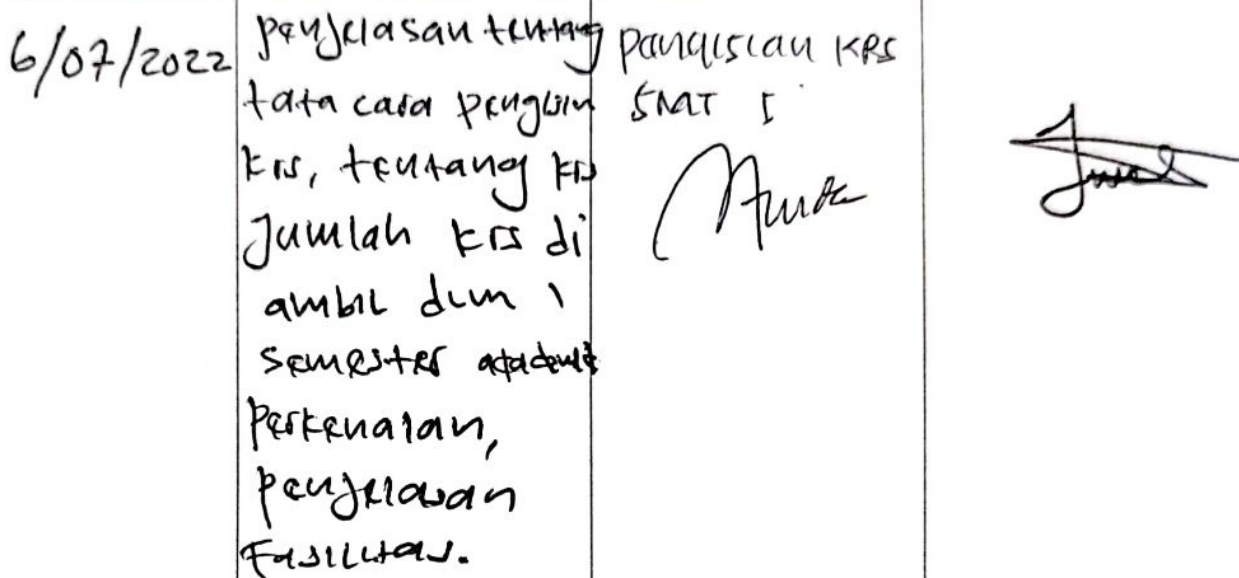 6/07/2022
penjelasan tentang
tata cara pengisin
krs, tentang krs
Jumlah krs di
ambil dlm 1
semester akademik
Perkenalan,
penjelasan
Fasilitas.
pengisian KRS
SMT I